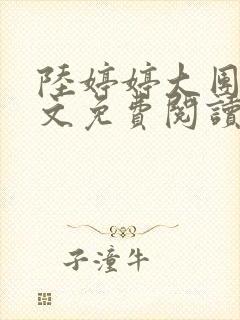 陸婷婷大團
文免費閱讀
子潼牛